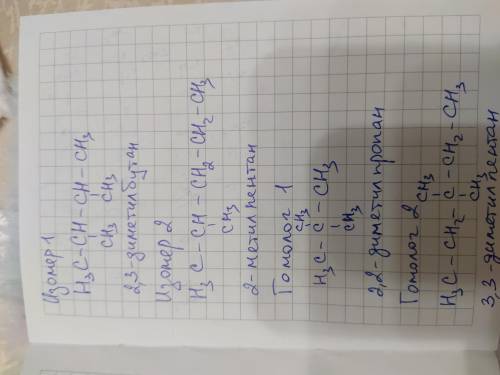 Изомер 1
H₃C-CH-CH-CH₃
CH₃ CH₃
2,3-диметилбутан
Изомер 2
H₃C-CH-CH₂-CH₂-CH₃
CH₃
2-метилпентан
Гомолог 1
CH₃
H₃C-C-CH₃
CH₃
2,2-диметилпропан
Гомолог 2
CH₃
H₃C-CH₂-C-CH₂-CH₃
CH₃
3,3-диметилпентан